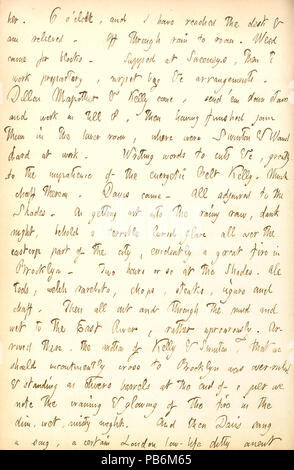 her. 6 o'clock, and I have reached the desk &
am relieved. Off through rain to room. Wood
came for blocks. Supped at Sweeneys, then I
work preparatory, carpet bag &c arrangements.
Dillon Mapother & Kelly come, send 'em down stairs
and work on till 8, then having finished join
them in the lower room, where were Swinton &
hard at work. Writing words to cuts &c, greatly
to the of the energetic Celt Kelly. Much
chaff thereon. Davis came. All adjourned to the
Shades. On getting out into the rainy, raw, dark
night, behold a terrible lurid glare all over the
eastern part of the city, evidently a great fire in
Brooklyn. Two hours or so at the Shades. Ale
tods, welch rarebits, chops, steaks, cigars and
chaff. Then all out and through the mud and
wet to the East River, rather uproariously. Ar-
rived there the motion of Kelly & Swinton that we
should incontinently cross to Brooklyn was over-ruled
& standing on barrels at the end of a pier we
note the waning & glowing of the fire in the
dim, wet, misty night. And then Davis sang
a song, a certain London low-life ditty anent
alamy
Image ID: PB6M65
www.alamy.com